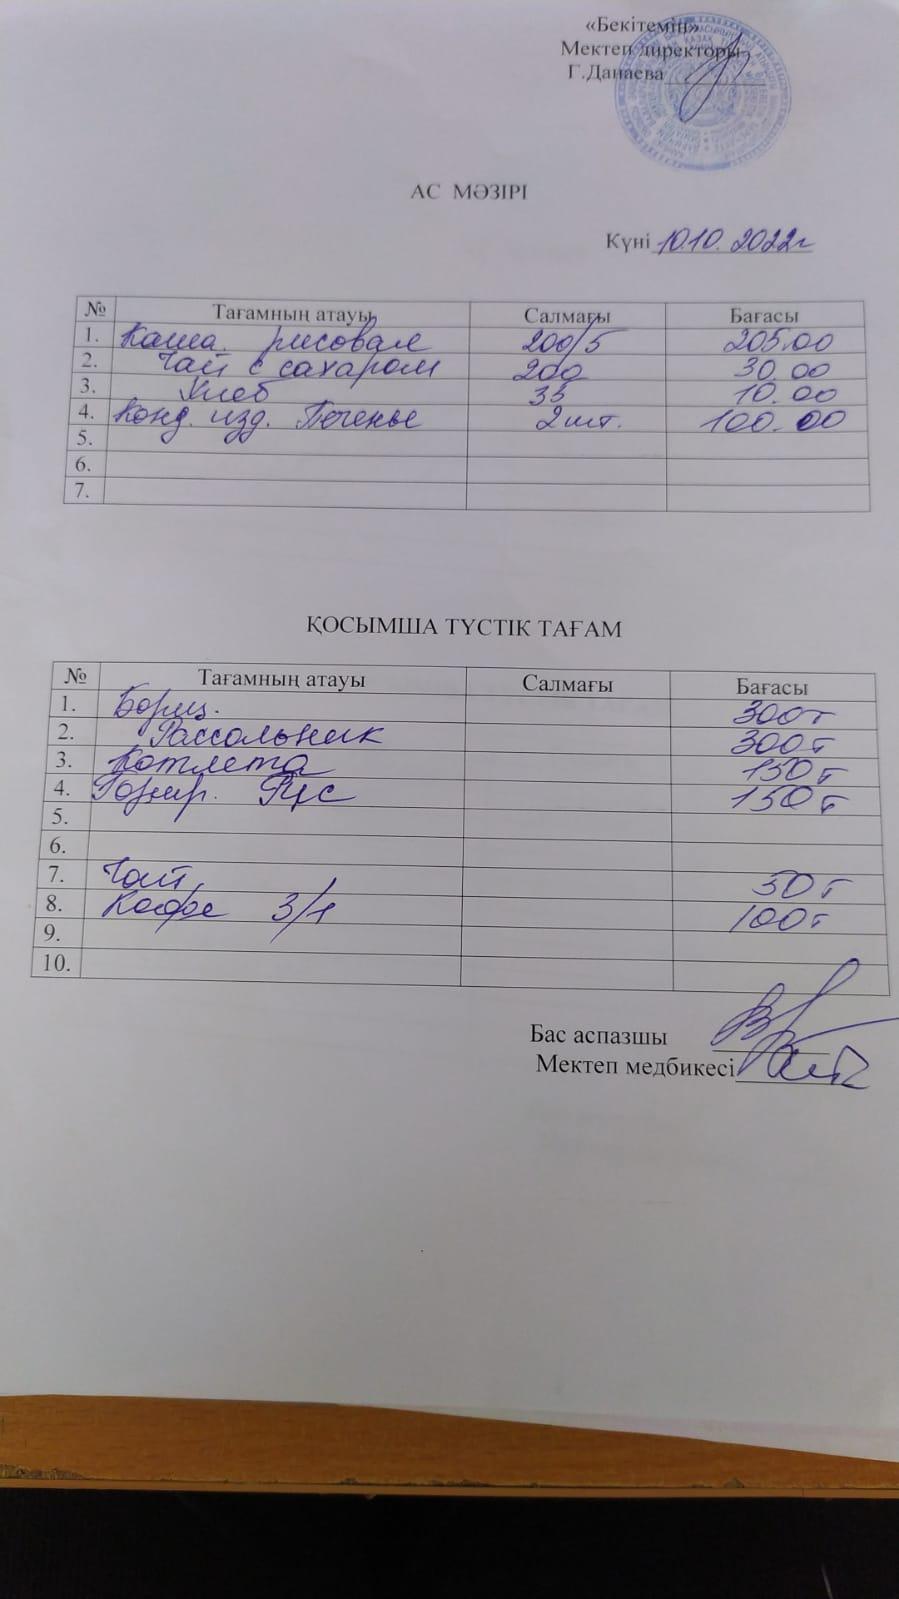 «Бекітемін»
Мектеп директоры
Г.Данаева
АС МӘЗІРІ
Күні 10.10.2022г
№ Тағамның атауы Салмағы Бағасы
1. Каша рисовая 200/5 205.00
2. Чай с сахаром 200 30.00
3. Хлеб 35 10.00
4. Конд. изд. Печенье 2шт. 100.00
5.
6.
7.
ҚОСЫМША ТҮСТІК ТАҒАМ
№ Тағамның атауы Салмағы Бағасы
1. Борщ. 300т
2. Рассольник 300т
3. Котлета 150т
4. Гарнир. Рис 150т
5.
6.
7. Чай 50т
8. Кофе 3/1 100т
9.
10.
Бас аспазшы
Мектеп медбикесі